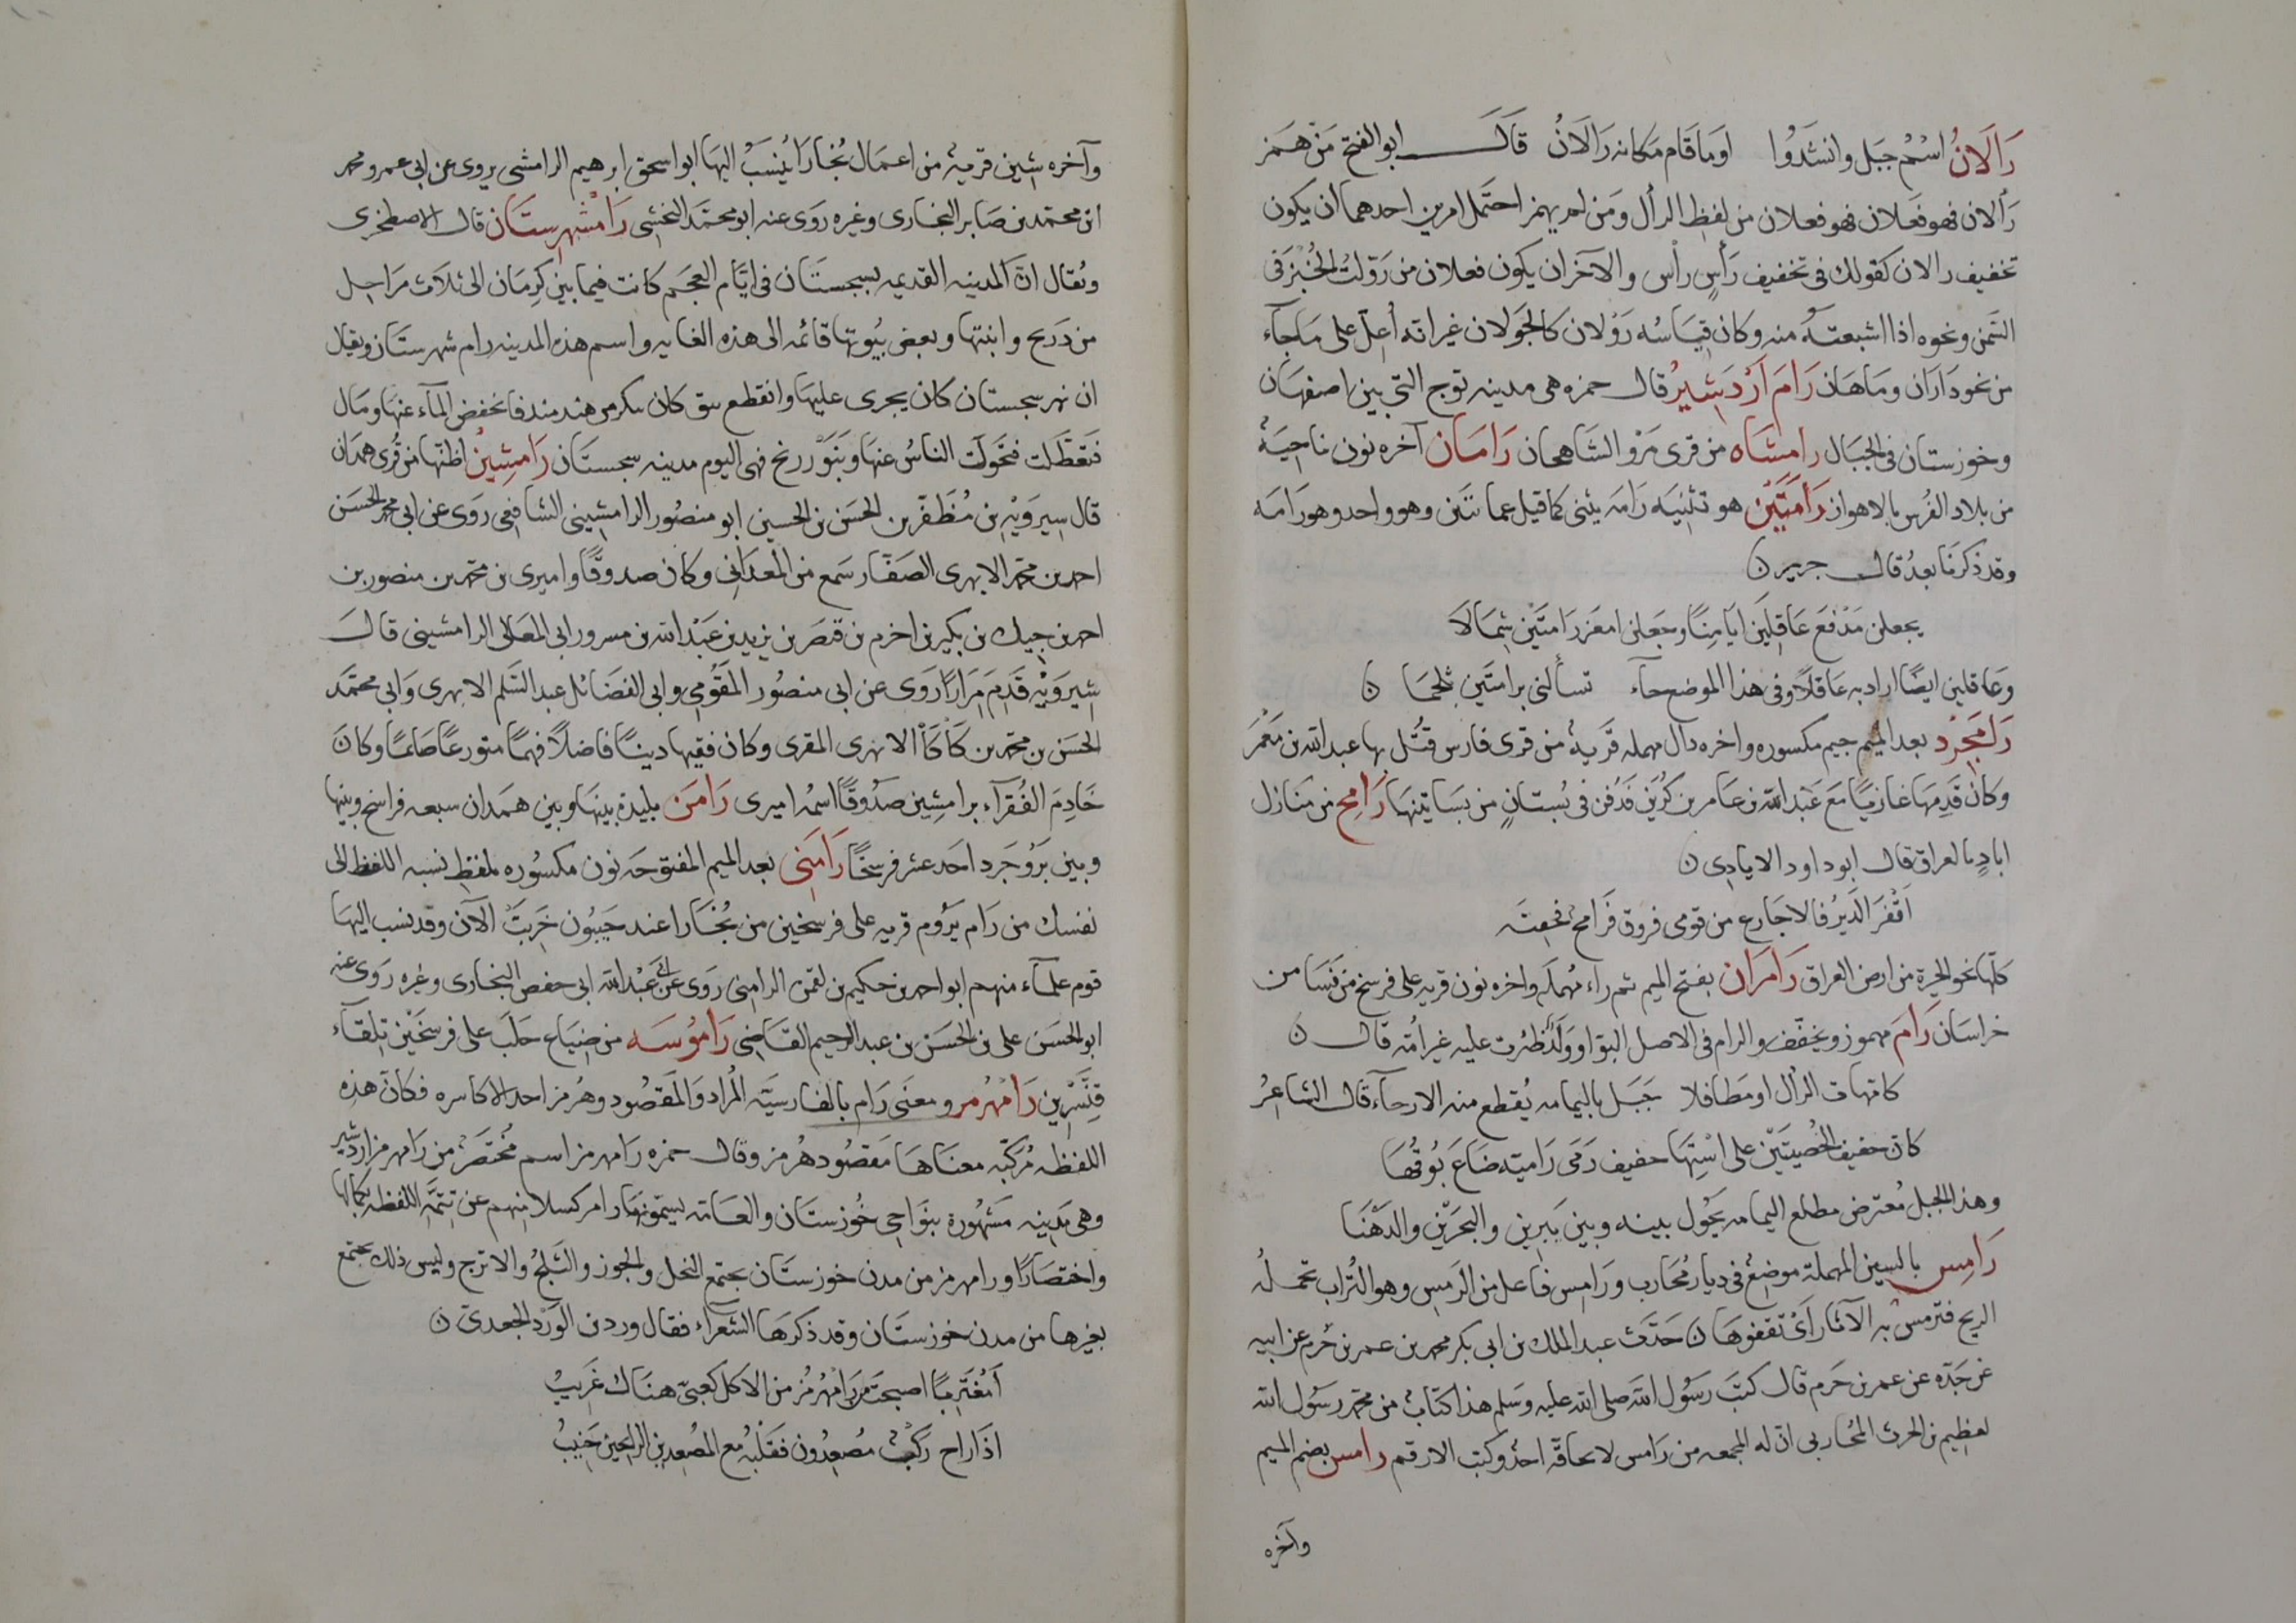 رَالَانُ اسْمُ جَبَل وانشَدُوا اوَمَا قَام مَكانه رَالَانُ قَالَ ابوالفتح مَنْ هَمَز
رَألان فهو فَعَلان فهو فعلان من لفظ الرأل وَمَن لم يهمز احتَمل امرين احدهما أن يكون
تخفيف رالان كقولك فى تخفيف رَأسٍ رأس والآخر ان يكون فعلان من رَوّلتُ الخُبْزَ فى
السَّمن ونحوه اذا اشبعتَهُ منه وكان قِيَاسُه رَوْلان كالجَوَلان غير انه أُعِلَّ على مَا جآء
من نحو دَارَان ومَاهَان رَامَ اَرْدَشِيرُ قال حمزه هى مدينه توج التى بين اصفهَان
وخوزستان فى الجبَال رامِشَاه من قرى مَرْو الشَاهجان رَامَان آخره نون ناحِيَةٌ
من بلاد الفُرس بالاهواز رَامَتَيْنِ هو تثنِيَه رَامَه يثنى كما قيل عمايتَين وهو واحد وهو رَامَه
وقد ذكرنا بعدُ قال جرير ن
يجعلن مَدْفعَ عَاقِلَين ايَامِنًا وجَعلن امعَز رَامتَين شِمَالَا
وعَاقلين ايضًا اراد به عَاقلًا وفى هذا الموضع جآء تسألنى برامتَين ثلجمَا ن
رَامِجَرْد بعد الميم جيم مكسوره واخره دال مهمله قَريةٌ من قرى فارس قُتُل بها عبد الله بن مَعْمَر
وكان قَدِمهَا غازيًا مَعَ عَبْد الله بن عَامر بن كُرَيْز فَدُفن فى بُستانٍ من بَسَاتينهَا رَامح من منَازل
ابادٍ بالعراق قال ابوداود الايادِى ن
اَقْفَرَ الدَيرُ فالاجَارع من قومى فروق فَرامحٌ فخفِيَه
كلّها نحو الحِيرة من ارض العراق رَامَرَان بفتح الميم ثم راء مُهملَه واخره نون قريه على فرسخ من نَسَا من
خراسَان رَامَ مهموز ويخفّف والرام فى الاصل البَوّ او وَلَدٌ ظُئرت عليه غير امّه قال ن
كامهات الرأل او مَطافلا جَبَل باليمامه يُقطع منه الارحآء قال الشاعِرُ
كان حفيف الخُصيَتَيْن على اسْتِهَا حفيف رَمَى رَاميّه ضَاعَ بُوقُهَا
وهذا الجبل مُعترض مطلع اليمامه يَحُول بينه وبين يَبرين والبحرَيْن والدَهْنَا
رَامِس بالسين المهملة موضِعٌ فى ديار مُحَارب ورَامِس فاعل من الرَمس وهو التُراب تحملُه
الريح فترمس به الآثار اَىْ تعفوهَا ن حَدّث عبد الملك بن ابى بكر محمد بن عمر بن حَزم عن ابيه
عَن جَدّه عن عمر بن حَرم قال كتبَ رسُول الله صلى الله عليه وَسَلم هذا كتَابٌ من محمّد رسُول الله
لعظيم بن الحرث المحَاربى انّ له المجمعه من رَامس لا يحاقّه احدٌ وكتب الارقم رامس بضم الميم
وآخره
وآخره شين قريةٌ من اعمَال بُخارَا يُنسَبْ اليهَا ابو اسحق ابرهيم الرامشى يروى عن ابى عمرو محمد
ابن محمّد بن صَابر البخارى وغيره روَى عنه ابو محمَّد النخشبى رَامْشهرِستَان قال الاصطخرى
ويُقال انّ المدينه القديمه بسجستَان فى ايّام العجَم كانت فيما بين كرِمَان الى ثلاث مَرَاحِل
من دَريح وابنتِها وبعض بُيُوتها قائمه الى هذه الغايه واسم هذه المدينه رام شهرستَان ويقال
ان نهر سجستان كان يجرى عليهَا وانقطع بق كان سكر من هند مند فانخفض المآء عنهَا ومَال
فتعَطّلت فتحَولَت الناسُ عنهَا وبَنَوْ زرنج فهى اليوم مدينه سجستَان رَامشِيْن اظنّها من قُرى همَدان
قال شيرَوَيْهِ بن مُظَفّر بن الحسَن بن الحسين ابو منصُور الرامشِينى الشافعى روَى عن ابى محمد الحسَن
احمد بن محمّد الابهرى الصَفّار سَمع من المعدَانى وكان صدوقًا واميرى بن محمّد بن منصور بن
احمد بن جيك بن بكير بن اخرم بن قيصَر بن يزيد بن عَبْد الله بن مسرور ابى المعَالى الرامشينى قالَ
شيرَوَيْهِ قَدَمَ مَرَارًا رَوى عن ابى منصُور المقَوّمى وابى الفضَائل عبد السَلم الابهرى وَابى محمّد
الحسَن بن محمّد بن كَاكَا الابهرى المقرى وكان فقيها ديناً فاضلًا فهمًا متورعًا صَائمًا وكانَ
خَادِمَ الفُقرآء برامشِين صدُوقًا اسمُه اميرى رَامَن بليدة بينَها وبين همَدان سبعه فراسخ وبينها
وبين بَرُوجَرد احَد عشر فرسخًا رَامَنِى بعد الميم المفتوحَه نون مكسُوره بلفظ نسبه اللفظ الى
نفسك من رَام يَرُوم قريه على فرسخين من بُخَارا عند خَنْبُون خَربَتْ الآن وقد نسب اليهَا
قوم علمآء منهم ابو احمد بن حكيم بن لقمن الرامنى روَى عن ابى عَبْد الله ابى حفص البخارى وغيره روَى عنه
ابو الحسَن على بن الحسَن بن عبد الرحيم القَاضِى رَامُوسَه من ضيَاع حَلَب على فرسخَيْن تلقآء
قِنّسْرِين رَامْهُرمز ومعنَى رَام بالفارسيَّه المُراد وَالمقصُود وهُرمز احد الاكاسره فكان هذِه
اللفظه مُركّبه معنَاهَا مقصُود هُرمز وقال حمزه رَامهرمز اسم مُختصَر من رَامهرمز اردشير
وهى مَدينه مَشهُورة بنَوَاحِى خُوزستَان والعامّه يسمّونهَا رامز كسلا منهم عن تتمّه اللفظه بكمالها
واختصَارًا ورامهرمز من مدن خوزستَان يجتمع النخل والجوز والثَلجُ والاترج وليس ذلك يجتمع
بغيرها من مدن خوزستَان وقد ذكرَها الشعرآء فقال ورد بن الوَرْد الجعدىّ ن
اَمُغتَرِبًا اصبحتَ فى رَامهُرْمُز من الا كل كعبىّ هنَاك غَريبُ
اذَا راح ركبٌ مُصعِدُون فقَلْبُه مع المُصعِدين الرائحين جَنِيبُ